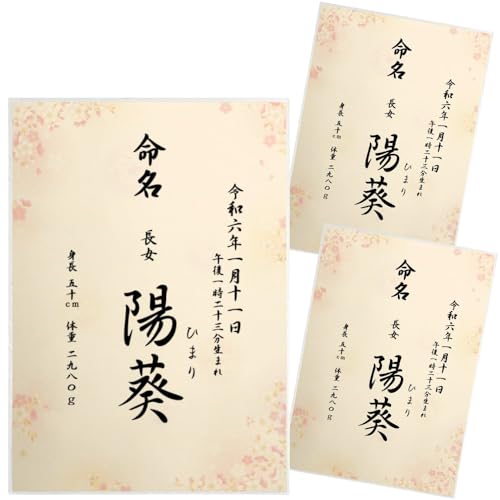 令和六年一月十一日
午後一時二十三分生まれ
命名
長女
陽葵
ひまり
身長 五十cm 体重 二九八〇g
命名
令和六年一月十一日
午後一時二十三分生まれ
長女
陽葵
ひまり
身長 五十cm 体重 二九八〇g
命名
令和六年一月十一日
午後一時二十三分生まれ
長女
陽葵
ひまり
身長 五十cm 体重 二九八〇g